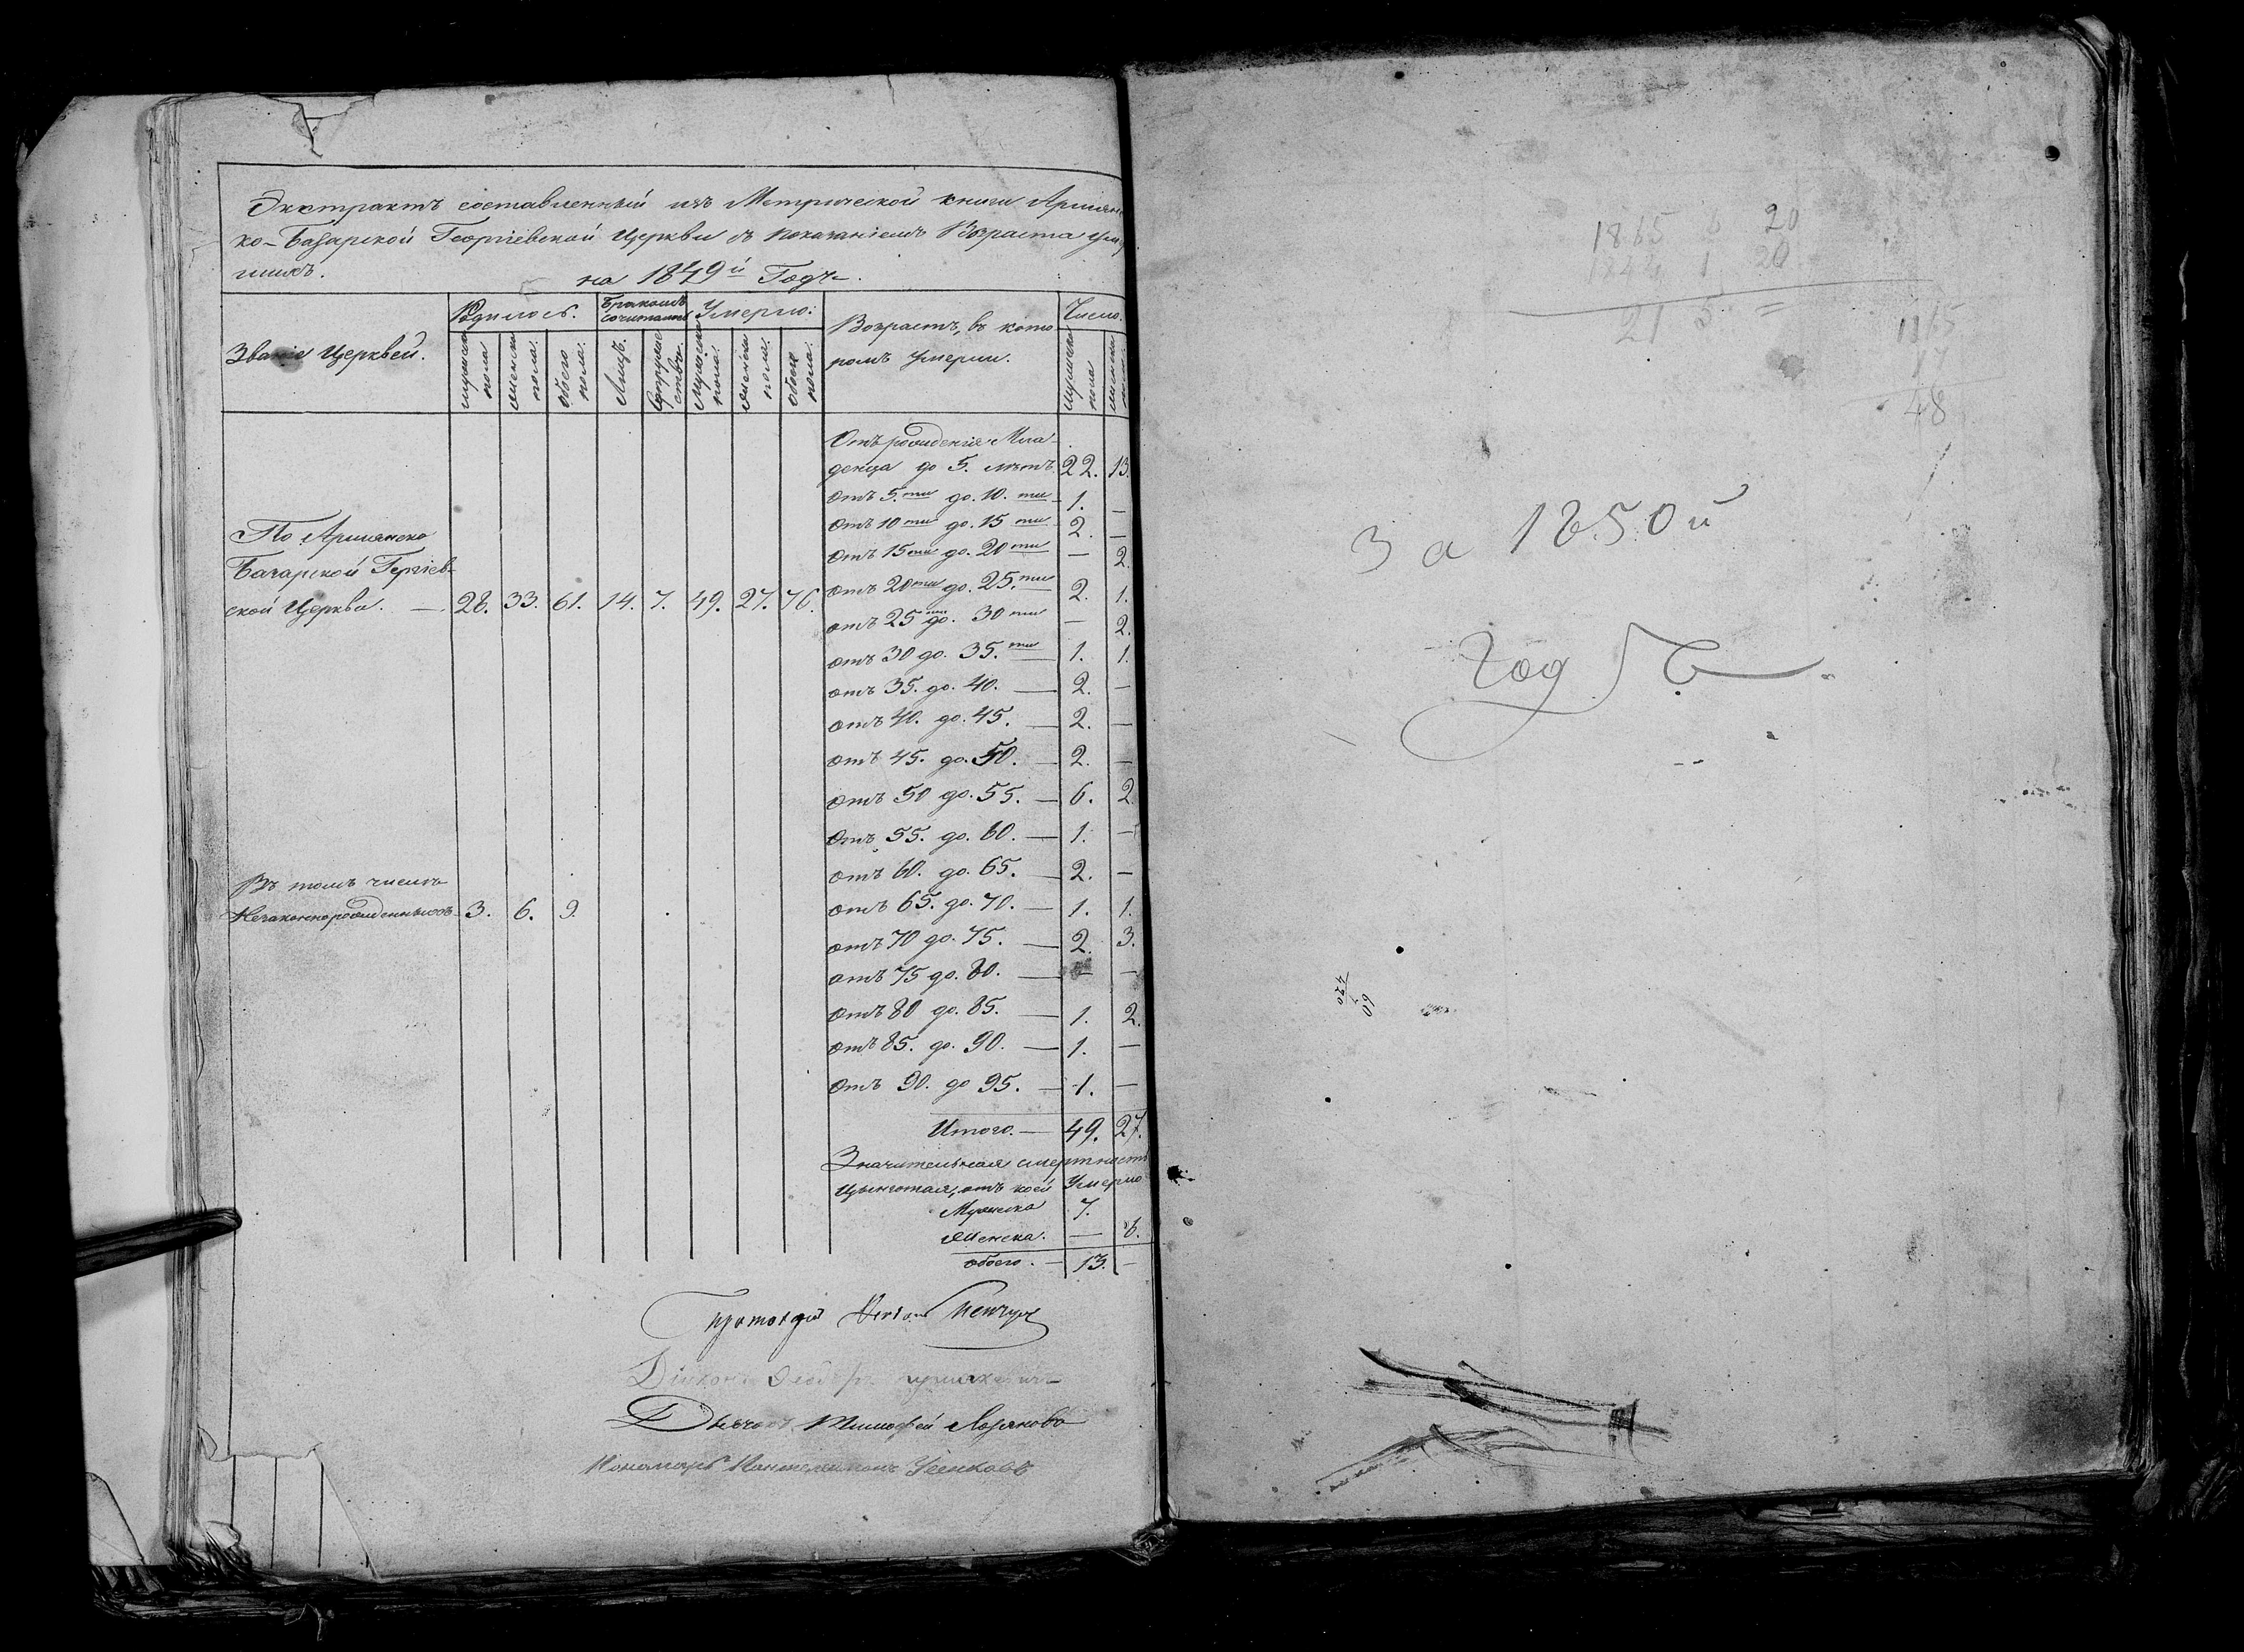 Экстрактъ составленный изъ Метрической книги Армянс
ко-Базарской Георгіевской Церкви съ показаніемъ Возраста умер
шихъ.
на 1849й Годъ.
Званіе Церквей.
Родилось.
Бракомъ сочетались
Умерло.
Возрастъ, въ кото
ромъ умерли.
Число.
мужеска пола
женска пола.
обоего пола.
Лицъ.
Супружествъ.
Мужеска пола.
женска пола.
обоего пола.
мужеска пола
женска пола
Отъ рожденія Мла-
денца до 5. лѣтъ 22. 13.
отъ 5.ти до 10.ти 1. —
отъ 10ти до 15ти 2. —
отъ 15ти до 20ти — 2.
По Армянско
Базарской Гергіев-
ской Церкви. — 28. 33. 61. 14. 7. 49. 27. 76.
отъ 20ти до 25.ти 2. 1.
отъ 25ти до. 30ти — 2.
отъ 30 до. 35.ти 1. 1.
отъ 35. до. 40. — 2. —
отъ 40. до. 45. — 2. —
отъ 45. до. 50. — 2. —
отъ 50 до. 55. — 6. 2
отъ 55. до. 60. — 1. —
отъ 60. до. 65. — 2. —
Въ томъ числѣ
Незаконнорожденныхъ 3. 6. 9.
отъ 65. до. 70. — 1. 1.
отъ 70 до. 75. — 2. 3.
отъ 75 до. 80. — — —
отъ 80 до. 85. — 1. 2.
отъ 85. до. 90. — 1. —
отъ 90. до 95. — 1. —
Итого. — 49. 27.
Значительная смертность
Цынготая, отъ коей Умерло
Мужеска 7.
Женска. — 6.
обоего. — 13. —
Діаконъ
Дьячокъ Тимофей
Пономарь Пантелеимонъ
1865 20
20
21 5 =
1865
17
48
За 1850й
Годъ.